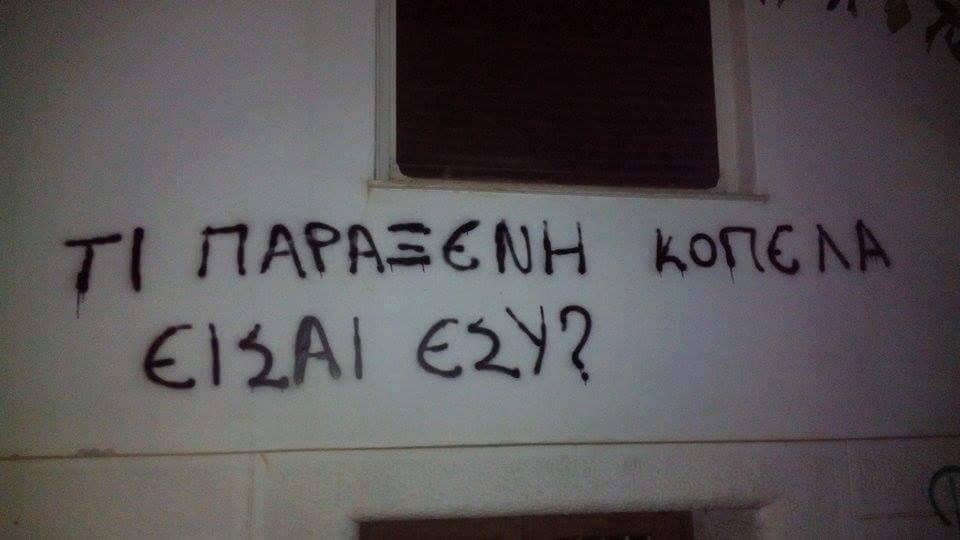 ΤΙ ΠΑΡΑΞΕΝΗ ΚΟΠΕΛΑ
ΕΙΣΑΙ ΕΣΥ?